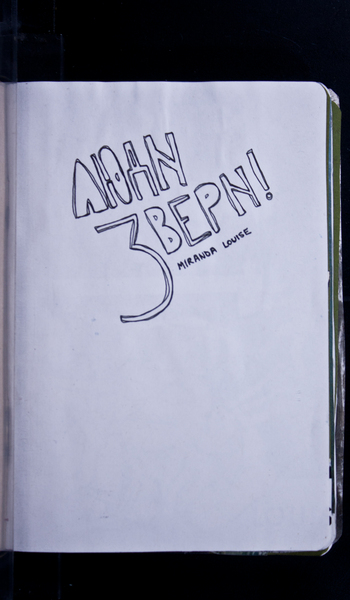 ЛЮДИ
ЗВЕРИ!
MIRANDA LOUISE